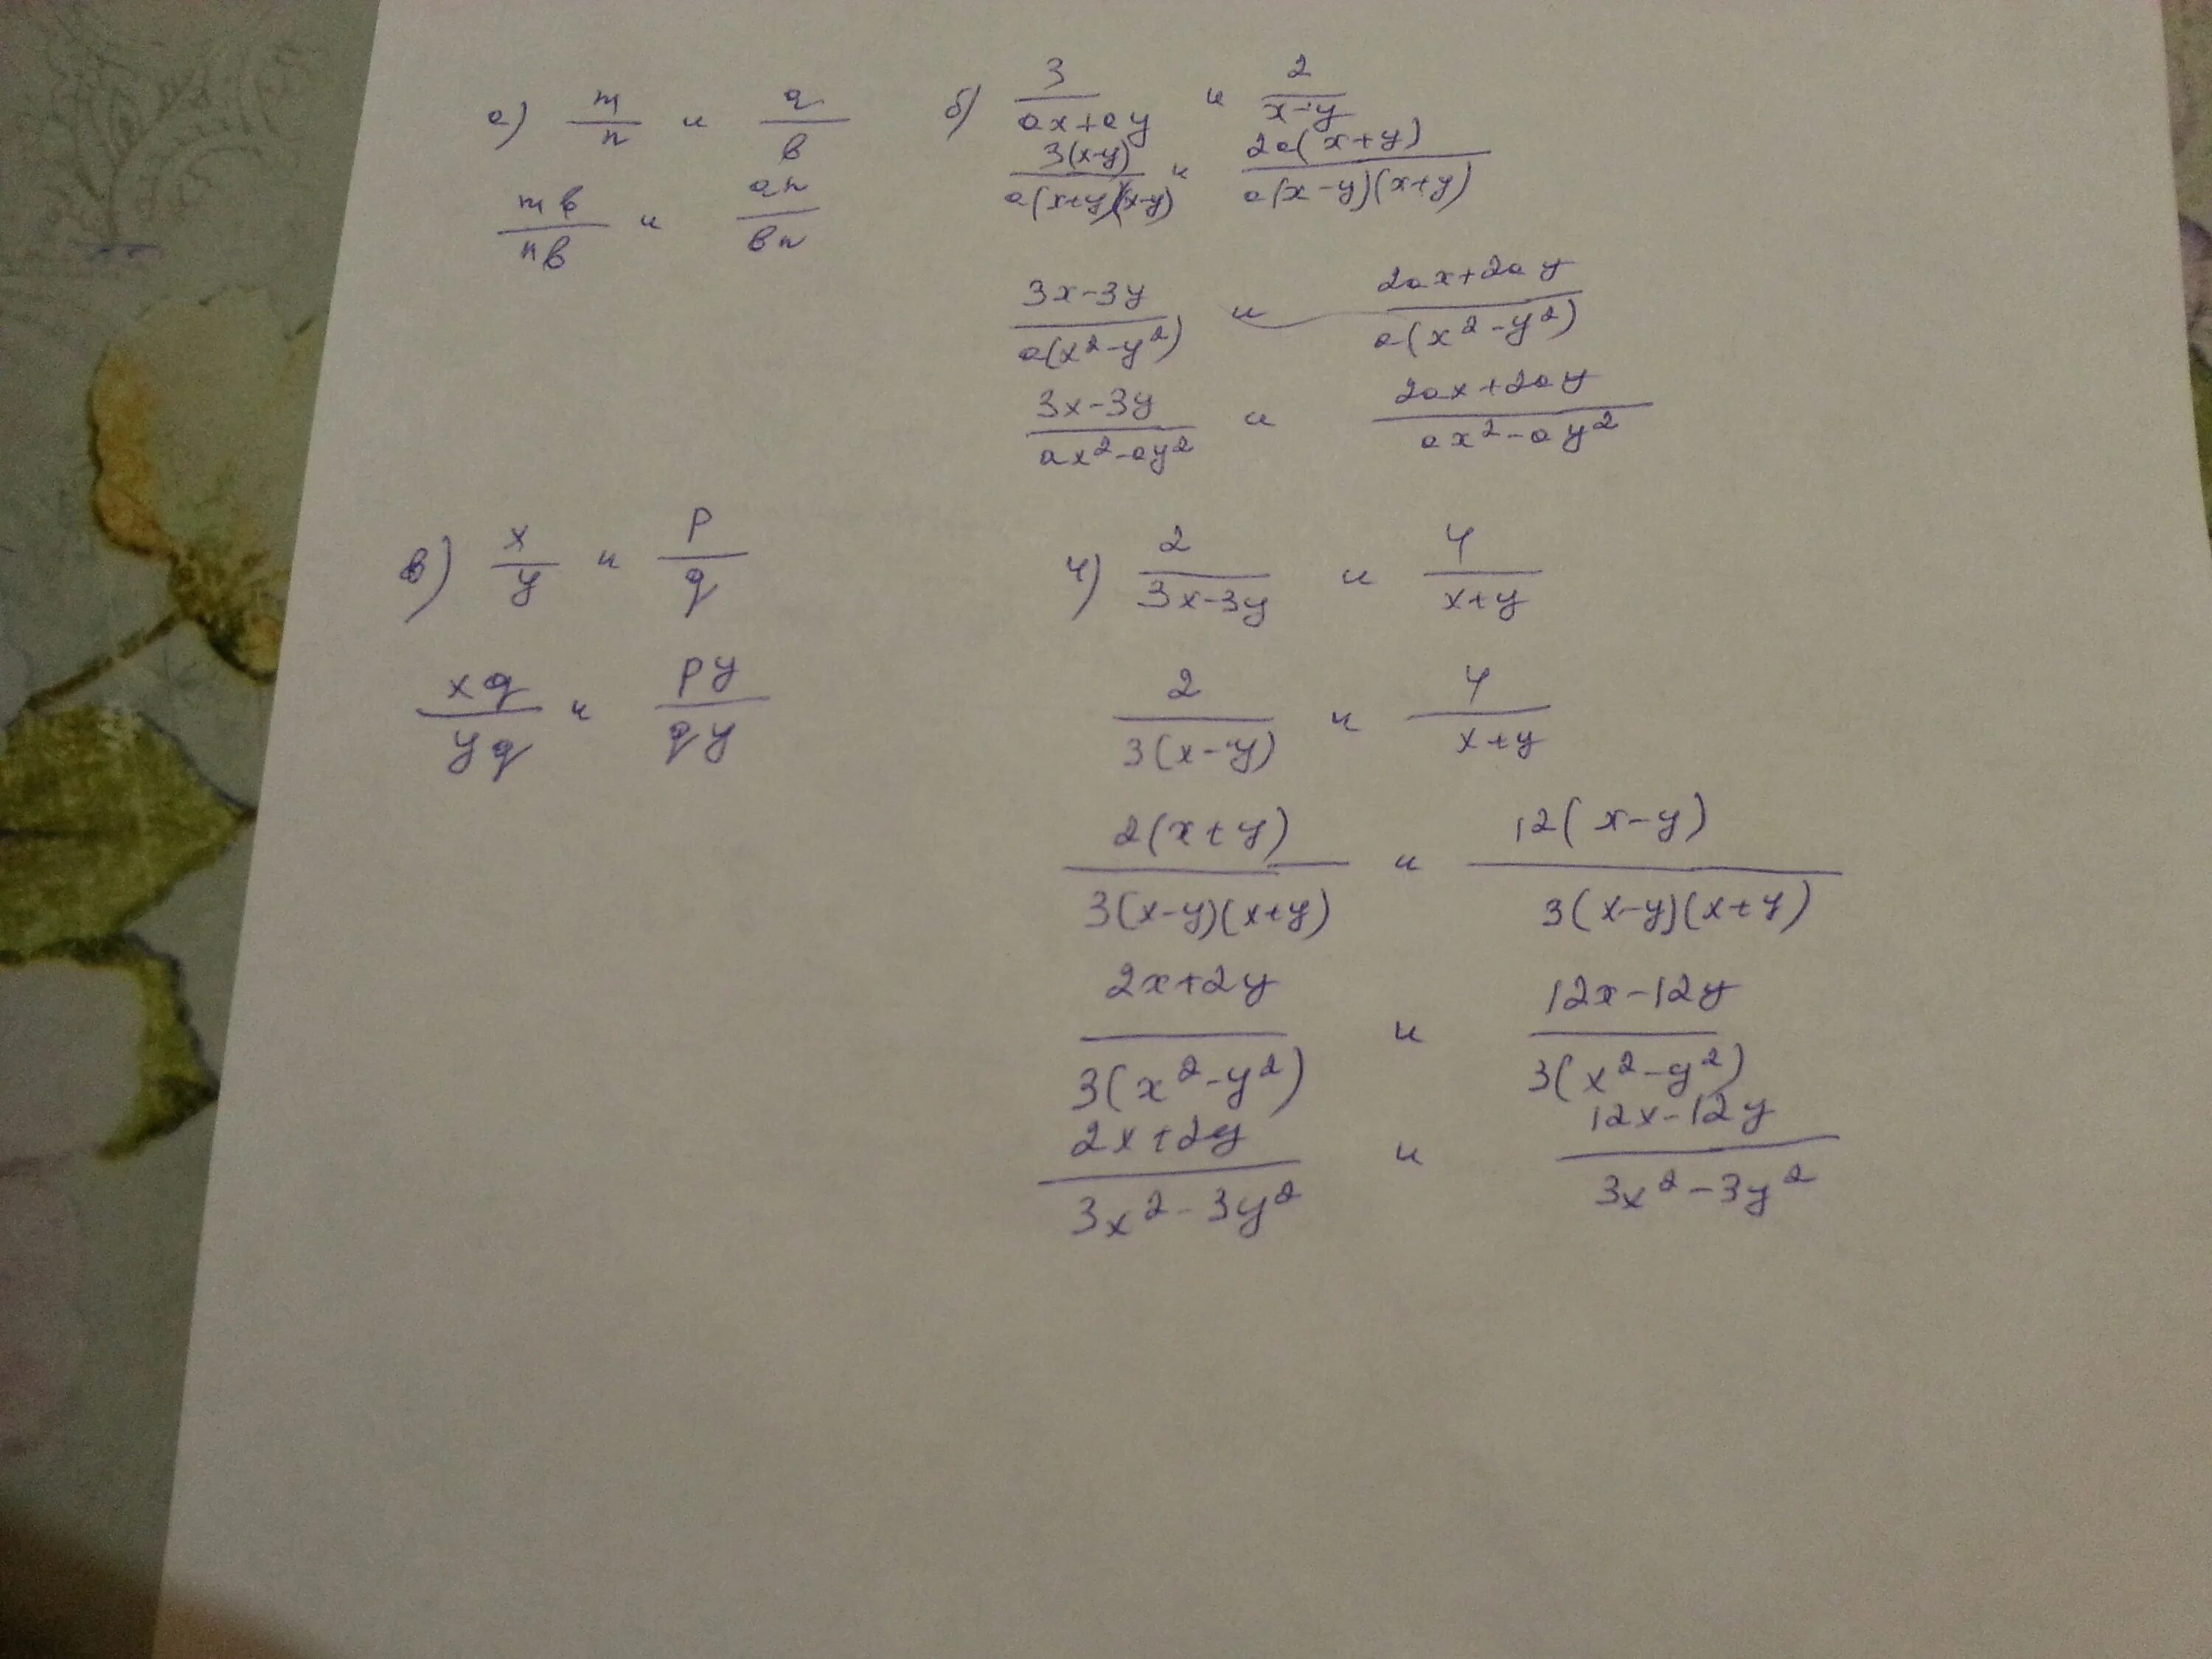 а) m/n и a/b
mb/nb и an/bn
б) 3/(ax+ay) и 2/(x-y)
3(x-y)/(a(x+y)(x-y)) и 2a(x+y)/(a(x-y)(x+y))
(3x-3y)/(a(x²-y²)) и (2ax+2ay)/(a(x²-y²))
(3x-3y)/(ax²-ay²) и (2ax+2ay)/(ax²-ay²)
в) x/y и p/q
xq/yq и py/qy
ч) 2/(3x-3y) и 4/(x+y)
2/(3(x-y)) и 4/(x+y)
2(x+y)/(3(x-y)(x+y)) и 12(x-y)/(3(x-y)(x+y))
(2x+2y)/(3(x²-y²)) и (12x-12y)/(3(x²-y²))
(2x+2y)/(3x²-3y²) и (12x-12y)/(3x²-3y²)